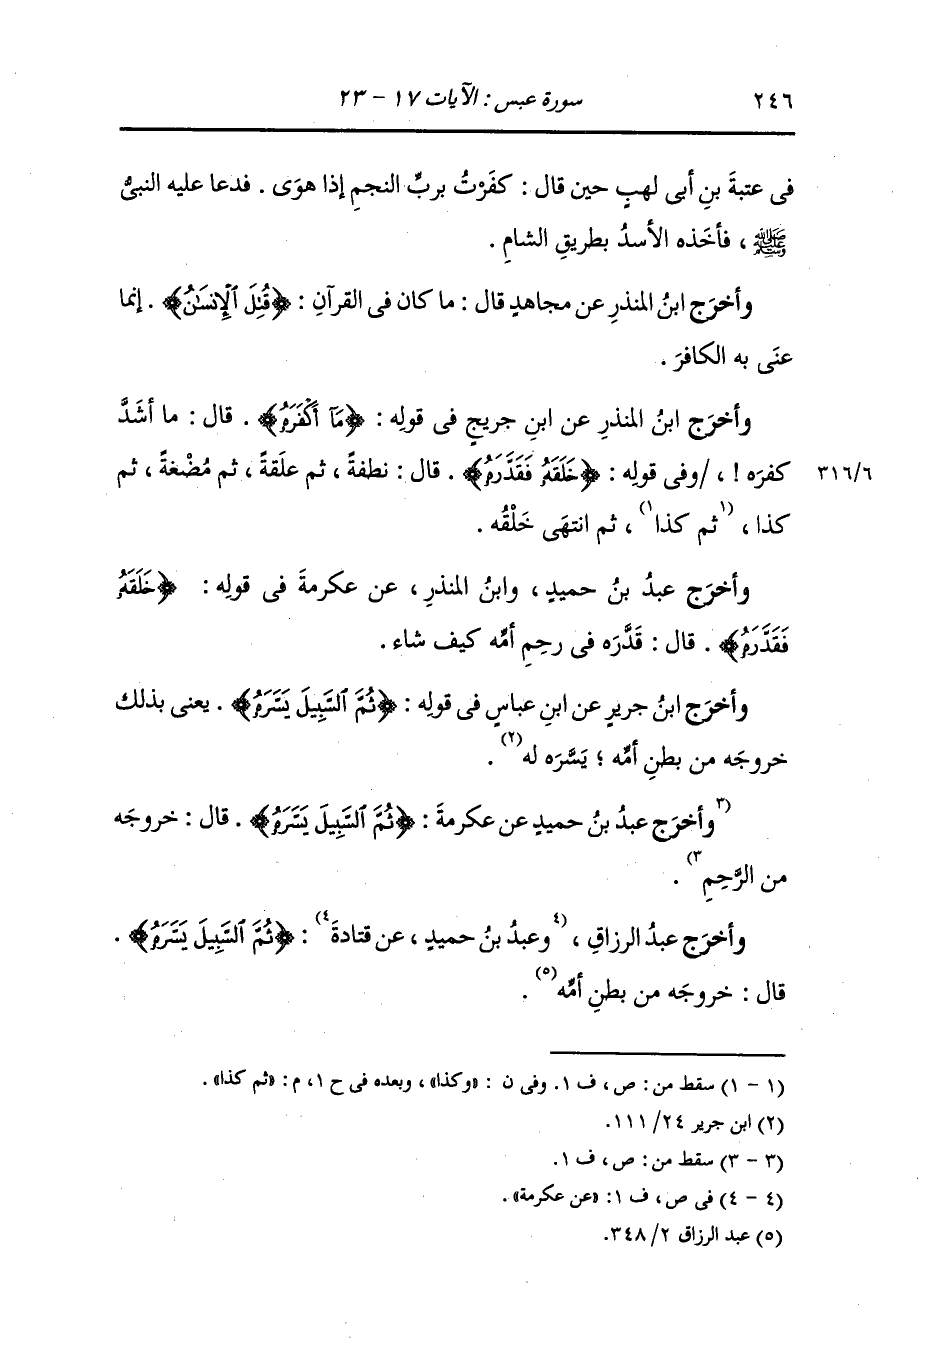 ٢٤٦ سورة عبس : الآيات ١٧ - ٢٣
فى عتبةَ بنِ أبى لهبٍ حين قال : كفَرْتُ بربِّ النجمِ إذا هوَى . فدعا عليه النبىُّ
ﷺ ، فأخَذه الأسدُ بطريقِ الشامِ .
وأخرَج ابنُ المنذرِ عن مجاهدٍ قال : ما كان فى القرآنِ : ﴿قُتِلَ ٱلْإِنسَٰنُ﴾ . إنما
عنَى به الكافرَ .
وأخرَج ابنُ المنذرِ عن ابنِ جريجٍ فى قولِه : ﴿مَآ أَكْفَرَهُۥ﴾ . قال : ما أشَدَّ
كفرَه ! ، /وفى قولِه : ﴿خَلَقَهُۥ فَقَدَّرَهُۥ﴾ . قال : نطفةً ، ثم علَقةً ، ثم مُضْغةً ، ثم ٣١٦/٦
كذا ، (١ثم كذا١) ، ثم انتهَى خَلْقُه .
وأخرَج عبدُ بنُ حميدٍ ، وابنُ المنذرِ ، عن عكرمةَ فى قولِه : ﴿خَلَقَهُۥ
فَقَدَّرَهُۥ﴾ . قال : قَدَّرَه فى رحِمِ أمِّه كيف شاء .
وأخرَج ابنُ جريرٍ عن ابنِ عباسٍ فى قولِه : ﴿ثُمَّ ٱلسَّبِيلَ يَسَّرَهُۥ﴾ . يعنى بذلك
خروجَه من بطنِ أمِّه ؛ يَسَّرَه له(٢) .
(٣وأخرَج عبدُ بنُ حميدٍ عن عكرمةَ : ﴿ثُمَّ ٱلسَّبِيلَ يَسَّرَهُۥ﴾ . قال : خروجَه
من الرَّحِمِ٣) .
وأخرَج عبدُ الرزاقِ ، (٤وعبدُ بنُ حميدٍ ، عن قتادةَ٤) : ﴿ثُمَّ ٱلسَّبِيلَ يَسَّرَهُۥ﴾ .
قال : خروجَه من بطنِ أمِّه(٥) .
(١ - ١) سقط من : ص ، ف ١. وفى ن : «وكذا» ، وبعده فى ح ١، م : «ثم كذا» .
(٢) ابن جرير ٢٤/ ١١١.
(٣ - ٣) سقط من : ص ، ف ١.
(٤ - ٤) فى ص ، ف ١: «عن عكرمة» .
(٥) عبد الرزاق ٢/ ٣٤٨.